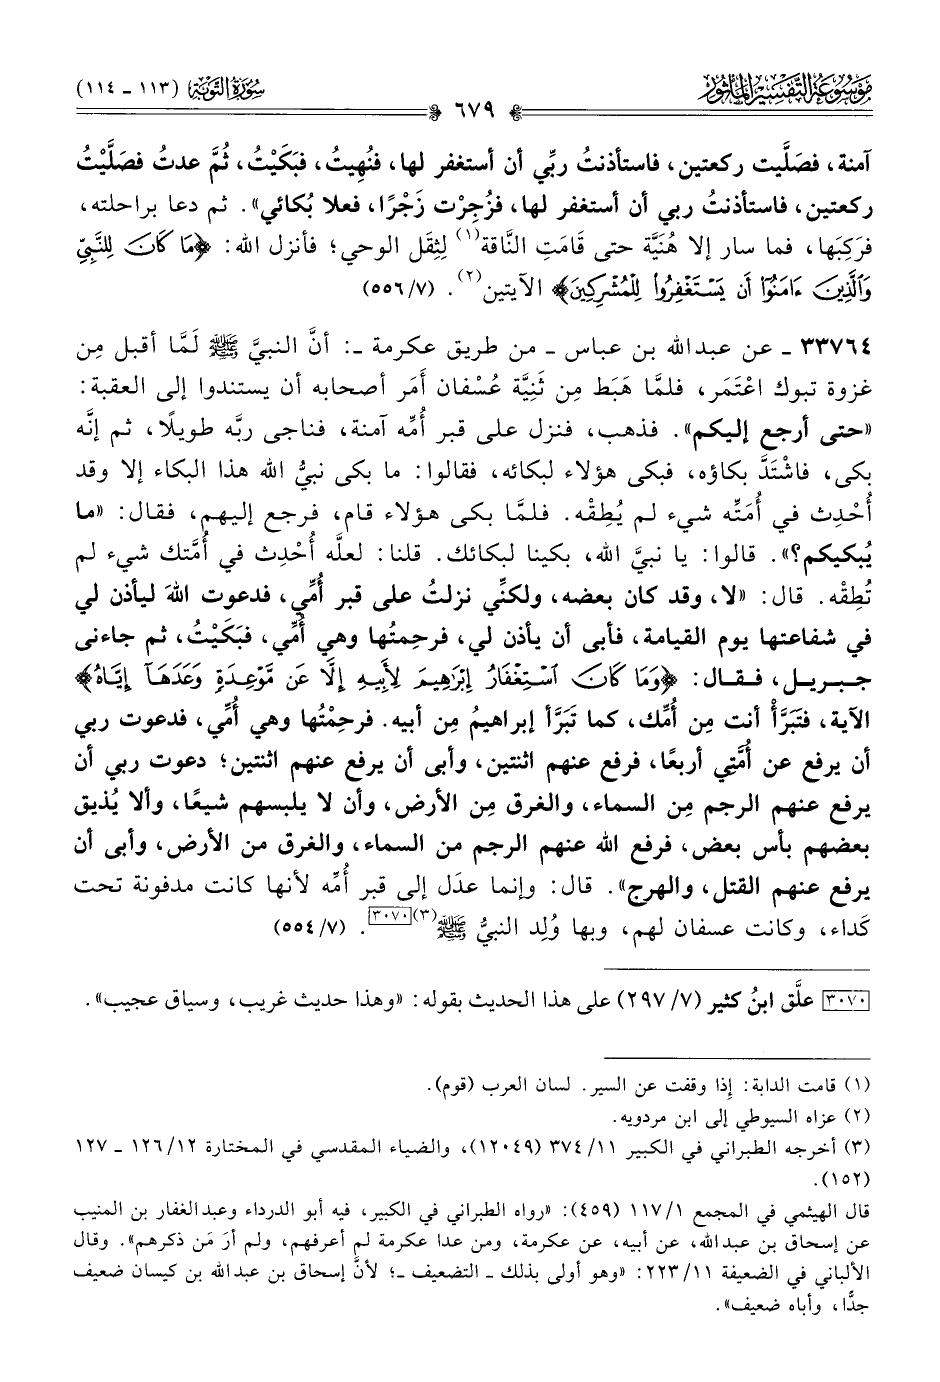 موسوعة التفسير المأثور
سورة التوبة (١١٣ - ١١٤)
٦٧٩
آمنة، فصَلَّيت ركعتين، فاستأذنتُ ربِّي أن أستغفر لها، فنُهِيتُ، فبَكَيْتُ، ثُمَّ عدتُ فصَلَّيْتُ
ركعتين، فاستأذنتُ ربي أن أستغفر لها، فزُجِرْت زَجْرًا، فعلا بُكائي». ثم دعا براحلته،
فرَكِبَها، فما سار إلا هُنَيَّة حتى قَامَتِ النَّاقة(١) لِثِقَل الوحي؛ فأنزل الله: ﴿مَا كَانَ لِلنَّبِيِّ
وَالَّذِينَ ءَامَنُوٓا أَن يَسْتَغْفِرُوا لِلْمُشْرِكِينَ﴾ الآيتين(٢). (٥٥٦/٧)
٣٣٧٦٤ - عن عبدالله بن عباس - من طريق عكرمة -: أنَّ النبيَّ ﷺ لَمَّا أقبل مِن
غزوة تبوك اعْتَمَر، فلمَّا هَبَط مِن ثَنِيَّة عُسْفان أَمَر أصحابه أن يستندوا إلى العقبة:
«حتى أرجع إليكم». فذهب، فنزل على قبر أُمِّه آمنة، فناجى ربَّه طويلًا، ثم إنَّه
بكى، فاشْتَدَّ بكاؤه، فبكى هؤلاء لبكائه، فقالوا: ما بكى نبيُّ الله هذا البكاء إلا وقد
أُحْدِث في أُمَتِّه شيء لم يُطِقْه. فلمَّا بكى هؤلاء قام، فرجع إليهم، فقال: «ما
يُبكيكم؟». قالوا: يا نبيَّ الله، بكينا لبكائك. قلنا: لعلَّه أُحْدِث في أُمَّتك شيء لم
تُطِقْه. قال: «لا، وقد كان بعضه، ولكنِّي نزلتُ على قبر أُمِّي، فدعوت اللهَ ليأذن لي
في شفاعتها يوم القيامة، فأبى أن يأذن لي، فرحِمتُها وهي أُمِّي، فبَكَيْتُ، ثم جاءني
جبريل، فقال: ﴿وَمَا كَانَ اسْتِغْفَارُ إِبْرَٰهِيمَ لِأَبِيهِ إِلَّا عَن مَّوْعِدَةٍ وَعَدَهَآ إِيَّاهُ﴾
الآية، فتَبَرَّأْ أنت مِن أُمِّك، كما تَبَرَّأ إبراهيمُ مِن أبيه. فرحِمْتُها وهي أُمِّي، فدعوت ربي
أن يرفع عن أُمَّتِي أربعًا، فرفع عنهم اثنتين، وأبى أن يرفع عنهم اثنتين؛ دعوت ربي أن
يرفع عنهم الرجم مِن السماء، والغرق مِن الأرض، وأن لا يلبسهم شيعًا، وألا يُذيق
بعضهم بأس بعض، فرفع الله عنهم الرجم من السماء، والغرق من الأرض، وأبى أن
يرفع عنهم القتل، والهرج». قال: وإنما عدَل إلى قبر أُمِّه لأنها كانت مدفونة تحت
كَداء، وكانت عسفان لهم، وبها وُلِد النبيُّ ﷺ(٣)[٣٠٧٠]. (٥٥٤/٧)
[٣٠٧٠] علَّق ابنُ كثير (٢٩٧/٧) على هذا الحديث بقوله: «وهذا حديث غريب، وسياق عجيب».
(١) قامت الدابة: إذا وقفت عن السير. لسان العرب (قوم).
(٢) عزاه السيوطي إلى ابن مردويه.
(٣) أخرجه الطبراني في الكبير ٣٧٤/١١ (١٢٠٤٩)، والضياء المقدسي في المختارة ١٢٦/١٢ - ١٢٧
(١٥٢).
قال الهيثمي في المجمع ١١٧/١ (٤٥٩): «رواه الطبراني في الكبير، فيه أبو الدرداء وعبدالغفار بن المنيب
عن إسحاق بن عبدالله، عن أبيه، عن عكرمة، ومن عدا عكرمة لم أعرفهم، ولم أرَ مَن ذكرهم». وقال
الألباني في الضعيفة ٢٢٣/١١: «وهو أولى بذلك - التضعيف -؛ لأنَّ إسحاق بن عبدالله بن كيسان ضعيف
جدًّا، وأباه ضعيف».